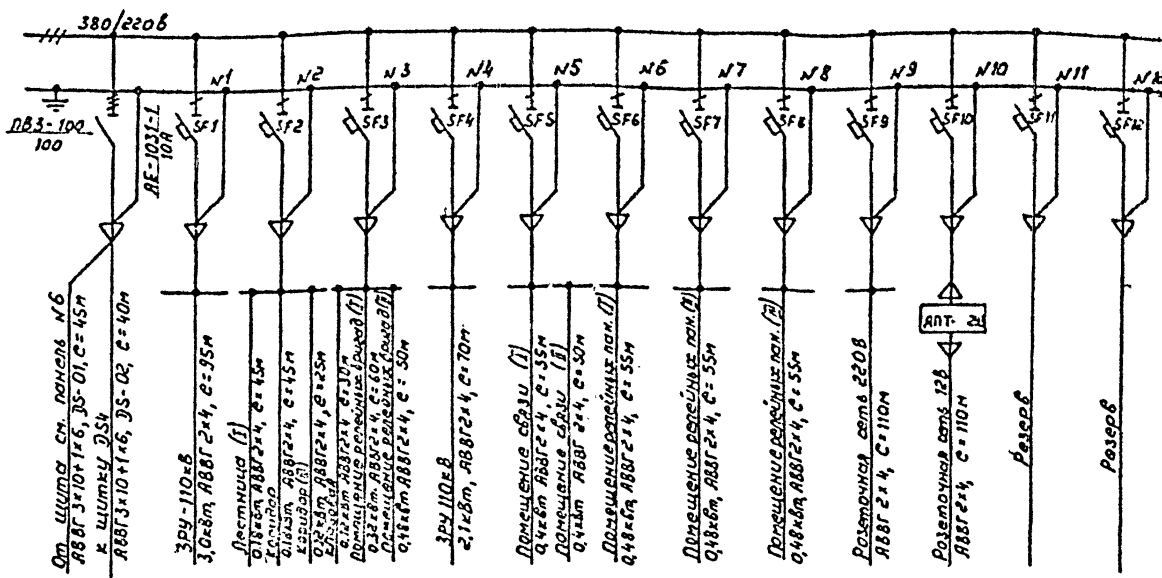 380/220В
N1
N2
N3
N4
N5
N6
N7
N8
N9
N10
N11
N12
ПВЗ-100
100
АЕ-1031-1
10А
SF1
SF2
SF3
SF4
SF5
SF6
SF7
SF8
SF9
SF10
SF11
SF12
АПТ-
От щита см. панель N6
АВВГ 3х10+1х6, DS-01, ℓ=45м
к щитку DS4
АВВГ 3х10+1х6, DS-02, ℓ=40м
ЗРУ-110кВ
3,0кВт, АВВГ 2х4, ℓ=95м
Лестница (I)
0,18кВт, АВВГ 2х4, ℓ=45м
Коридор
АВВГ2х4, ℓ=45м
Коридор (II)
АВВГ2х4, ℓ=25м
0,12кВт АВВГ2х4 ℓ=30м
Помещение релейных бригад (I)
0,32кВт. АВВГ2х4, ℓ=60м
Помещение релейных бригад (II)
0,48кВт АВВГ2х4, ℓ=50м
ЗРУ 110кВ
2,1кВт, АВВГ2х4, ℓ=70м
Помещение связи (I)
0,4кВт АВВГ2х4, ℓ=35м
Помещение связи (II)
0,4кВт АВВГ 2х4, ℓ=50м
Помещение релейных пан. (I)
0,48кВт, АВВГ2х4, ℓ=55м
Помещение релейных пан. (II)
0,48кВт, АВВГ2х4, ℓ=55м
Помещение релейных пан.
0,48кВт, АВВГ2х4, ℓ=55м
Розеточная сеть 220В
АВВГ 2х4, ℓ=110м
Розеточная сеть 12В
АВВГ 2х4, ℓ=110м
Резерв
Резерв